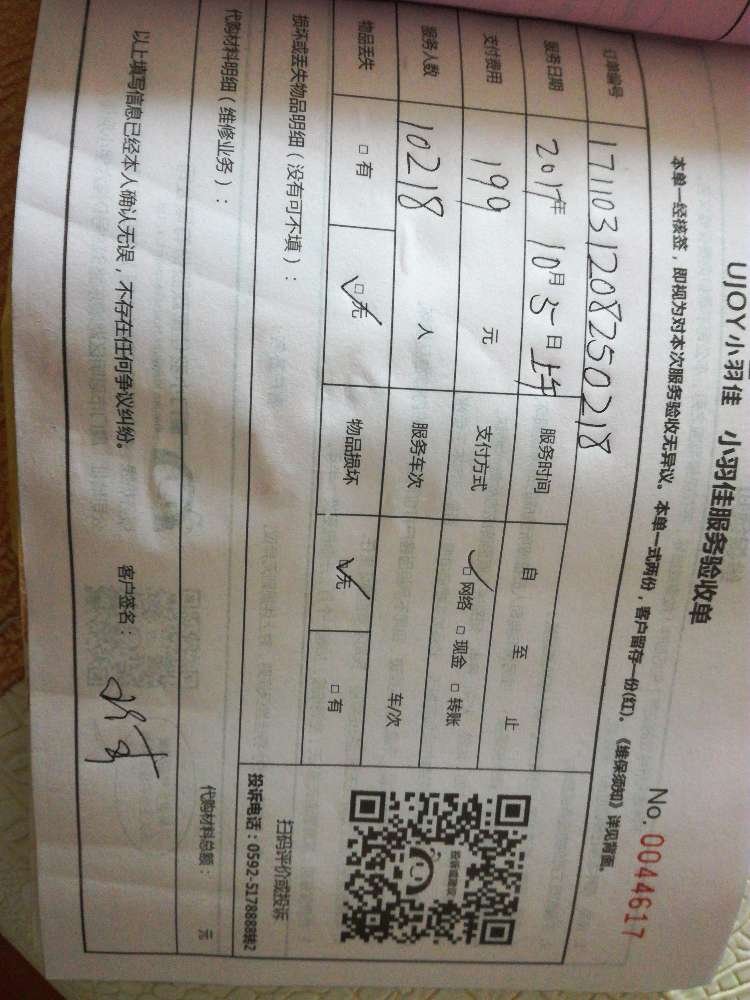 UJOY小羽佳 小羽佳服务验收单
No. 0044617
本单一经核签，即视为对本次服务验收无异议。本单一式两份，客户留存一份(红)。《维保须知》详见背面。
订单编号 1711031208250218
服务日期 2017年10月5日上午 服务时间 自 至 止
支付费用 199 元 支付方式 □网络 □现金 □转账
服务人数 10218 人 服务车次 车/次
物品丢失 □有 □无 物品损坏 □无 □有
扫码评价或投诉
投诉电话：0592-5178888转2
损坏或丢失物品明细（没有可不填）：
代购材料明细（维修业务）： 代购材料总额： 元
以上填写信息已经本人确认无误，不存在任何争议纠纷。 客户签名：